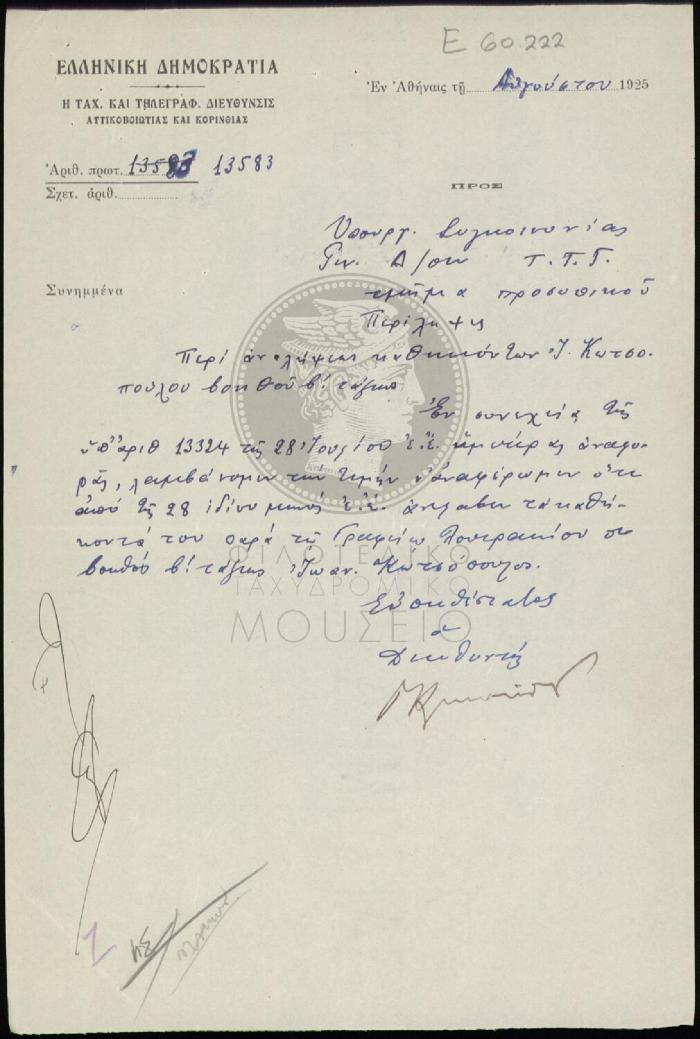 Ε 60.222
ΕΛΛΗΝΙΚΗ ΔΗΜΟΚΡΑΤΙΑ
Η ΤΑΧ. ΚΑΙ ΤΗΛΕΓΡΑΦ. ΔΙΕΥΘΥΝΣΙΣ
ΑΤΤΙΚΟΒΟΙΩΤΙΑΣ ΚΑΙ ΚΟΡΙΝΘΙΑΣ
Ἐν Ἀθήναις τῇ Αὐγούστου 1925
Ἀριθ. πρωτ. 13583 13583
Σχετ. ἀριθ.
ΠΡΟΣ
Ὑπουργ. Συγκοινωνίας
Γεν. Δ/σιν Τ.Τ.Τ.
τμῆμα προσωπικοῦ
Συνημμένα
Περίληψις
Περί ἀναλήψεως καθηκόντων Ἰ. Κωτσο-
πούλου βοηθοῦ β! τάξεως
Ἐν συνεχείᾳ τῆς
ὑπ' ἀριθ 13324 τῆς 28 Ἰουλίου ἡμετέρας ἀναφο-
ρᾶς, λαμβάνομεν τήν τιμήν ν' ἀναφέρωμεν ὅτι
ἀπό τῆς 28 ἰδίου μηνός ἀνέλαβεν τά καθή-
κοντά του παρά τῷ Γραφείῳ Λουτρακίου ὁ
βοηθός β! τάξεως Ἰωαν. Κωτσόπουλος.
Εὐπειθέστατος
ὁ
Διευθυντής
ΦΙΛΟΤΕΛΙΚΟ
ΤΑΧΥΔΡΟΜΙΚΟ
ΜΟΥΣΕΙΟ